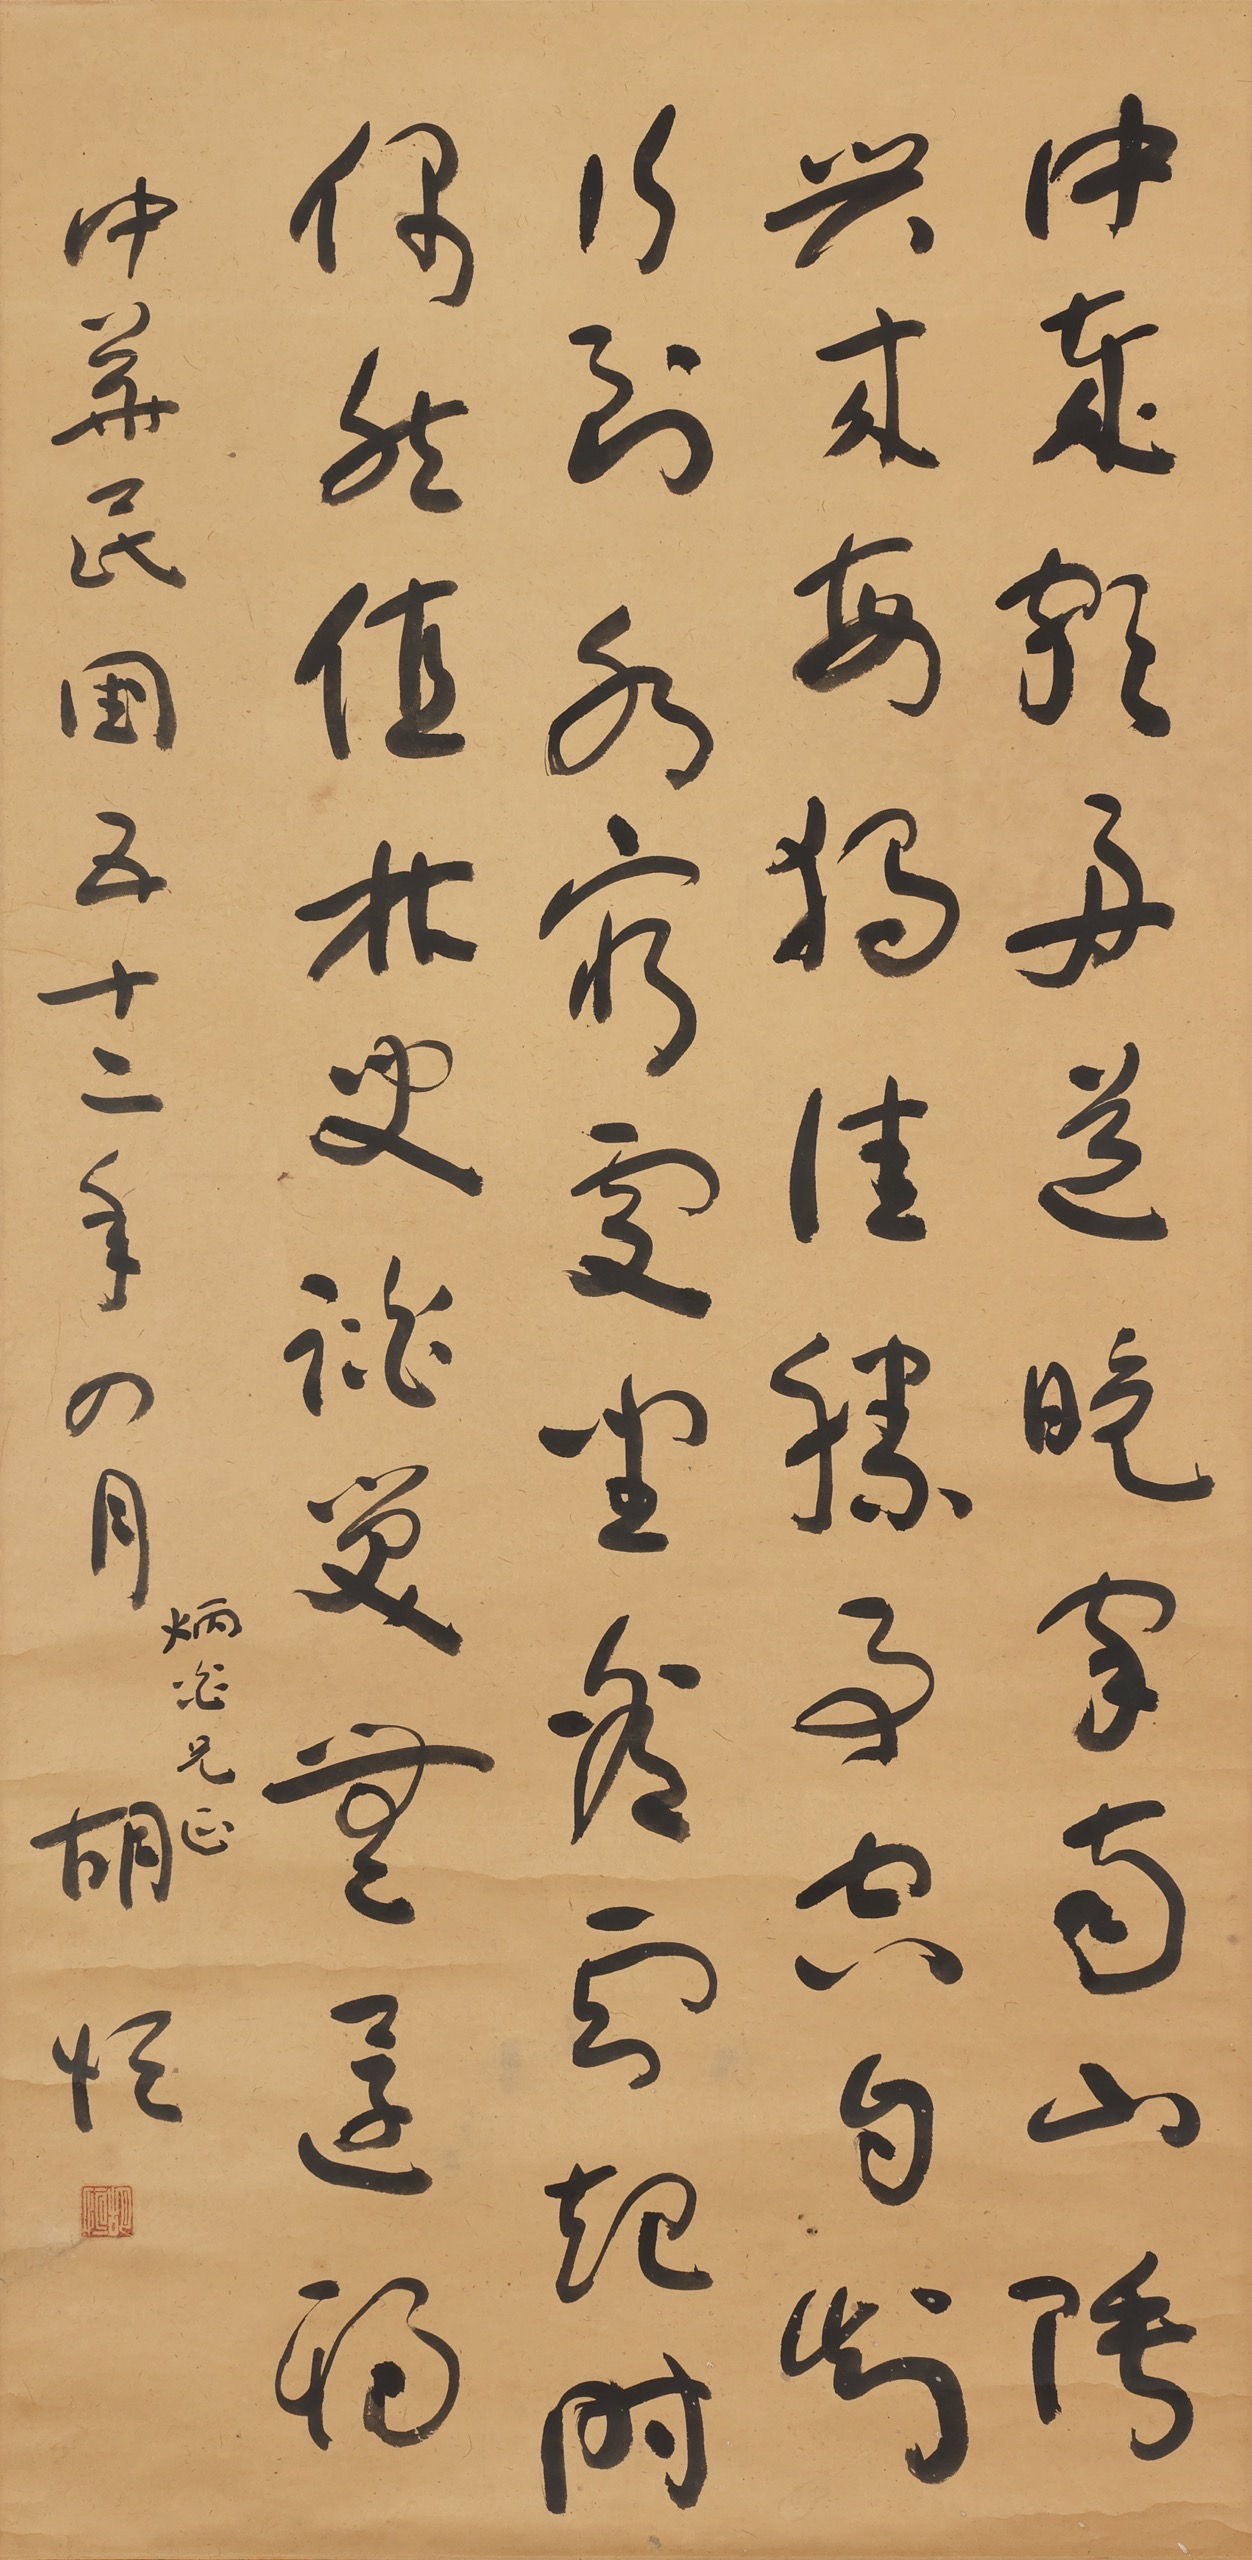 中歲頗好道晚家南山陲
興來每獨往勝事空自知
行到水窮處坐看雲起時
偶然值林叟談笑無還期
炳兄正
中華民國五十二年四月 胡恆